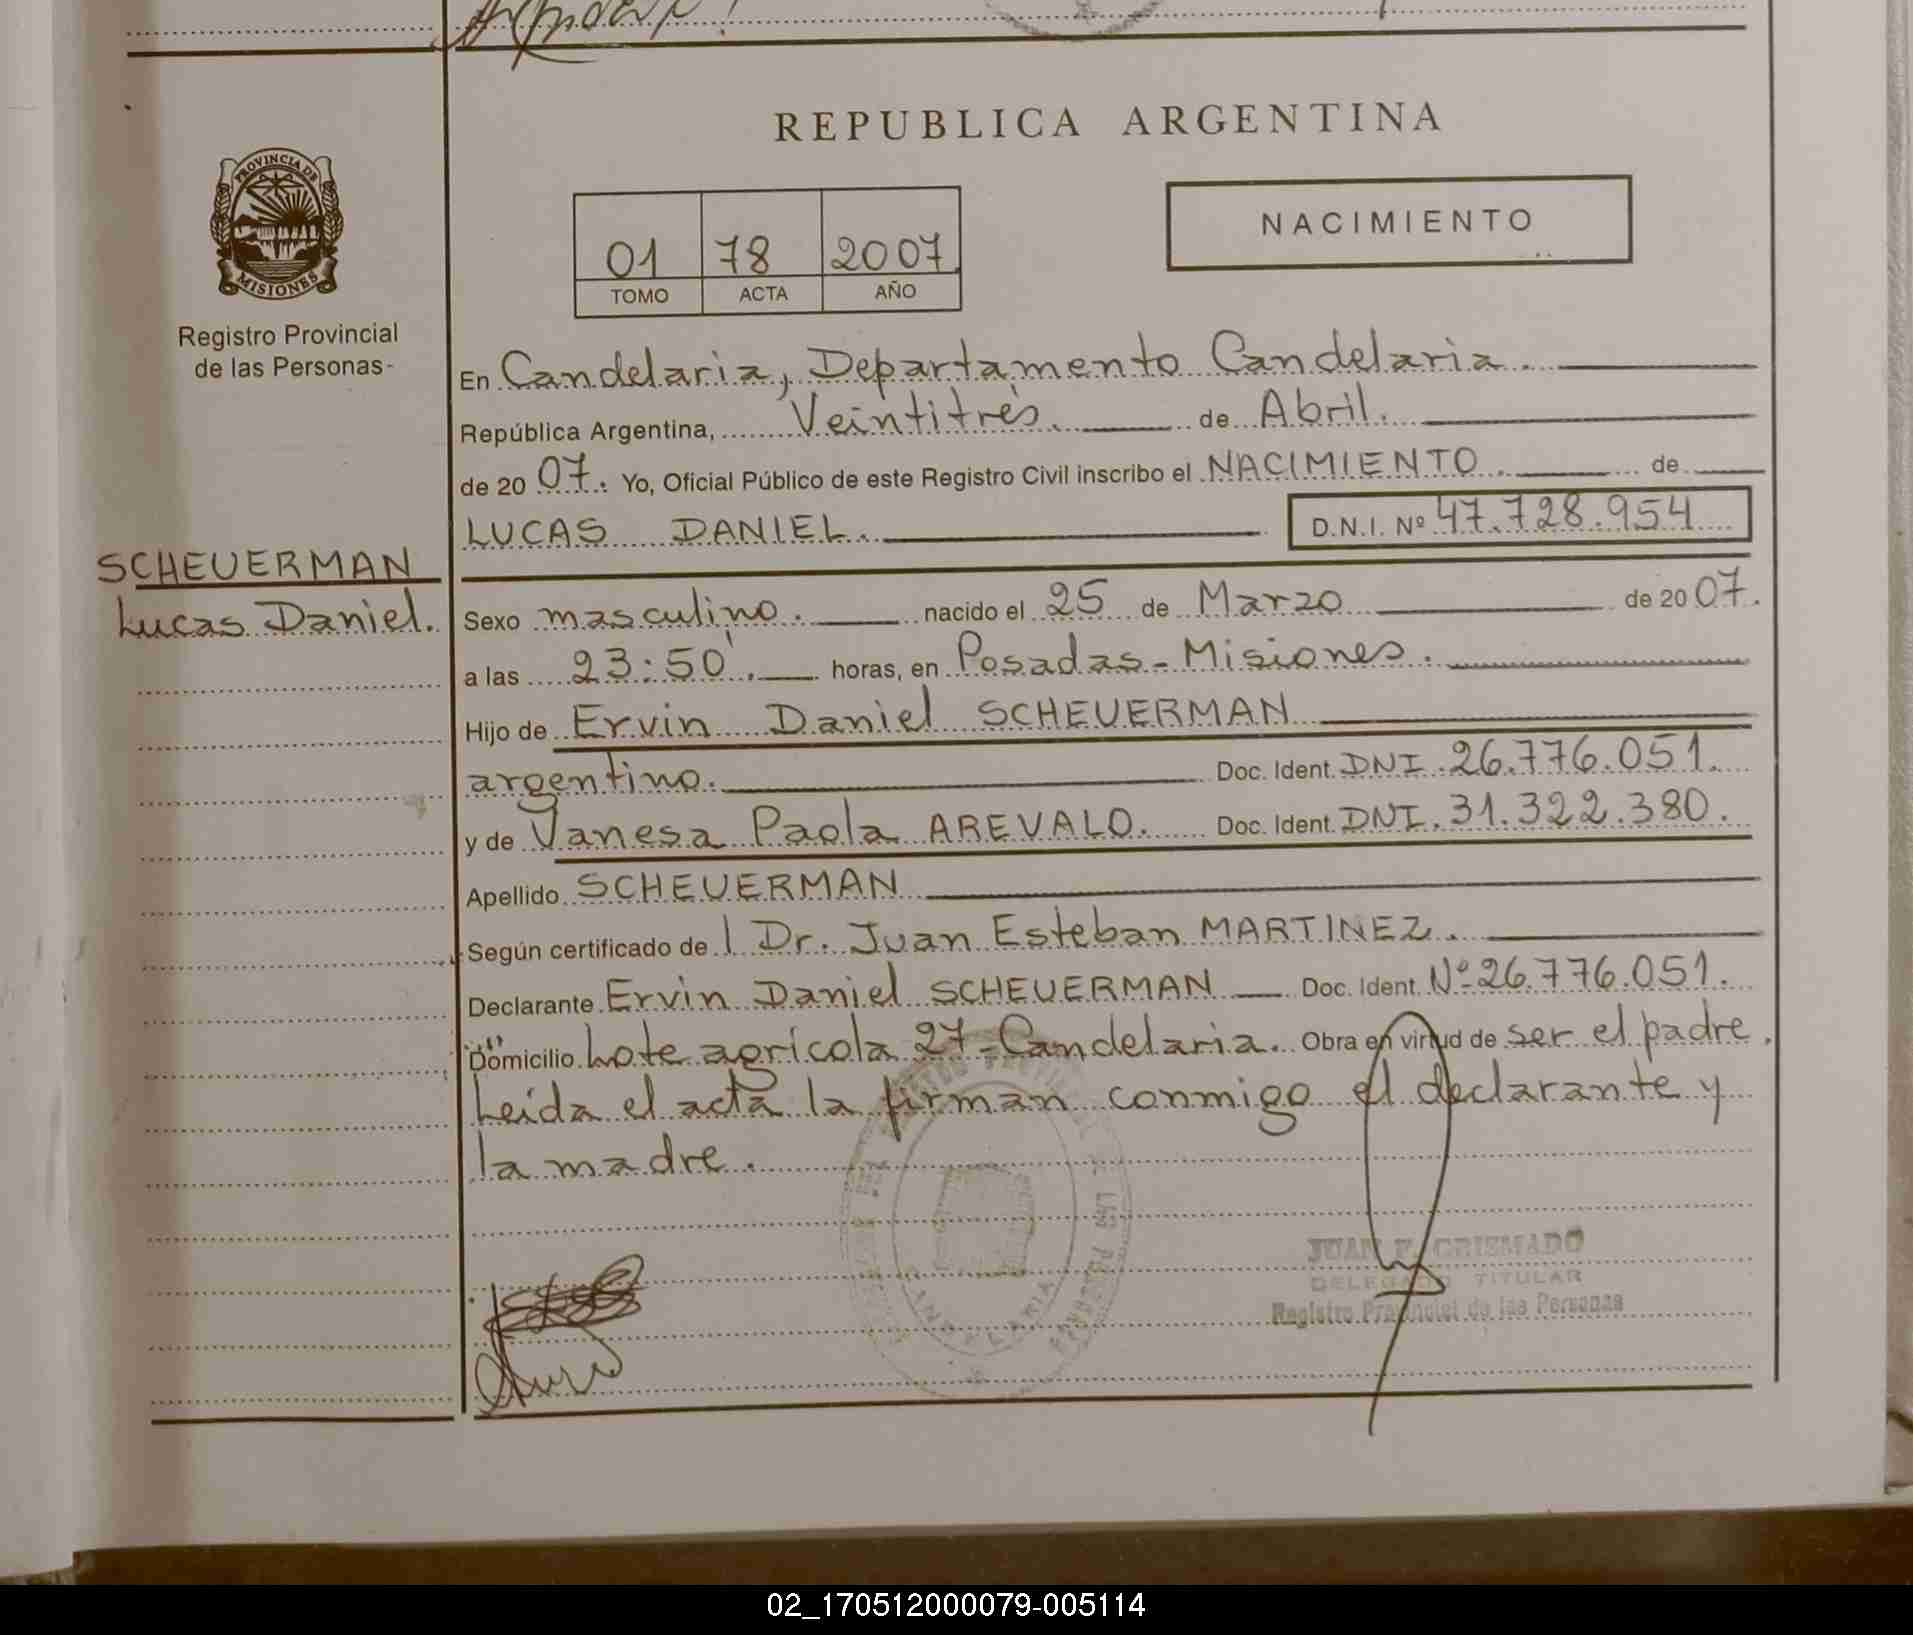 REPUBLICA ARGENTINA
PROVINCIA DE
MISIONES
Registro Provincial
de las Personas-
NACIMIENTO
01 78 2007
TOMO ACTA AÑO
En Candelaria, Departamento Candelaria.
República Argentina, Veintitrés. de Abril.
de 20 07. Yo, Oficial Público de este Registro Civil inscribo el NACIMIENTO. de
LUCAS DANIEL. D.N.I. Nº 47.728.954
SCHEUERMAN
Lucas Daniel.
Sexo masculino. nacido el 25 de Marzo de 20 07.
a las 23:50'. horas, en Posadas-Misiones.
Hijo de Ervin Daniel SCHEUERMAN
argentino. Doc. Ident. DNI.26.776.051.
y de Vanesa Paola AREVALO. Doc. Ident. DNI.31.322.380.
Apellido SCHEUERMAN
Según certificado de l Dr. Juan Esteban MARTINEZ.
Declarante Ervin Daniel SCHEUERMAN Doc. Ident. Nº 26.776.051.
Domicilio Lote agrícola 27-Candelaria. Obra en virtud de ser el padre.
Leída el acta la firman conmigo el declarante y
la madre.
CANDELARIA
DELEGADO TITULAR
Registro Provincial de las Personas
02_170512000079-005114